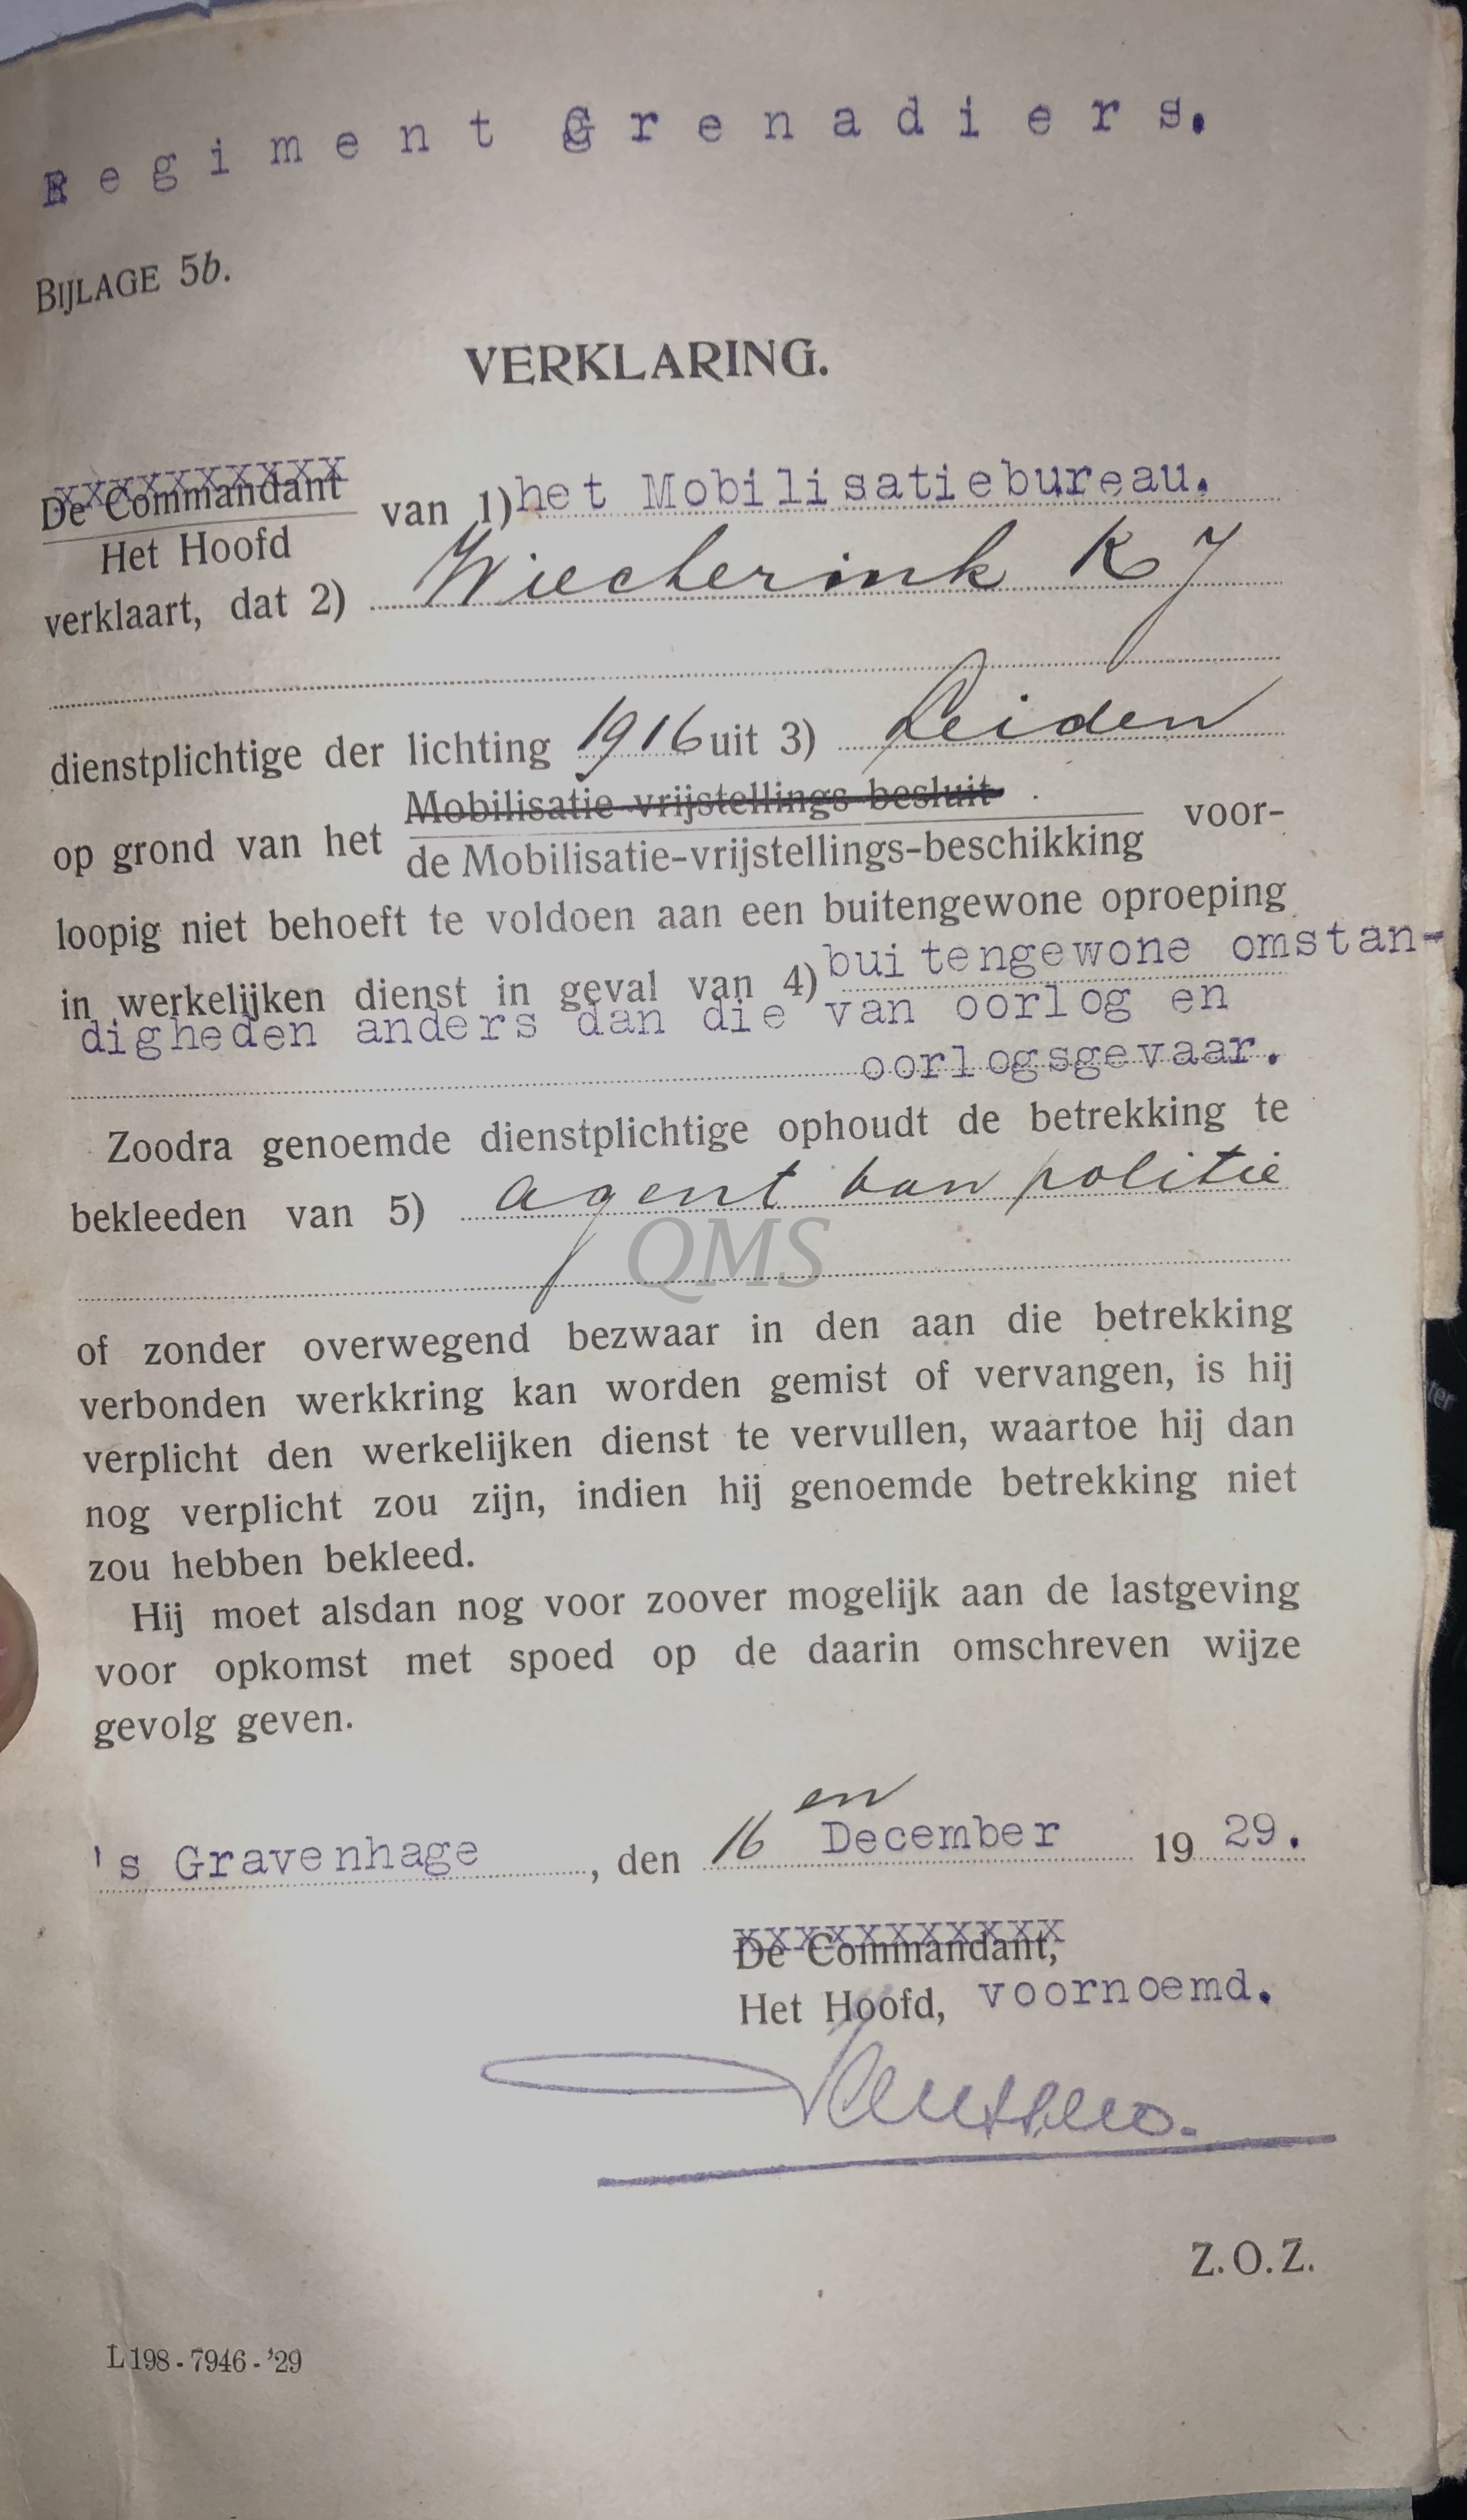 Regiment Grenadiers.
BIJLAGE 5b.
VERKLARING.
De Commandant
Het Hoofd
van 1) het Mobilisatiebureau.
verklaart, dat 2) Wiecherink K J
dienstplichtige der lichting 1916 uit 3) Leiden
Mobilisatie-vrijstellings-besluit
op grond van het de Mobilisatie-vrijstellings-beschikking voor-
loopig niet behoeft te voldoen aan een buitengewone oproeping
in werkelijken dienst in geval van 4) buitengewone omstan-
digheden anders dan die van oorlog en
oorlogsgevaar.
Zoodra genoemde dienstplichtige ophoudt de betrekking te
bekleeden van 5) agent van politie
QMS
of zonder overwegend bezwaar in den aan die betrekking
verbonden werkkring kan worden gemist of vervangen, is hij
verplicht den werkelijken dienst te vervullen, waartoe hij dan
nog verplicht zou zijn, indien hij genoemde betrekking niet
zou hebben bekleed.
Hij moet alsdan nog voor zoover mogelijk aan de lastgeving
voor opkomst met spoed op de daarin omschreven wijze
gevolg geven.
's Gravenhage, den 16en December 1929.
De Commandant,
Het Hoofd, voornoemd.
Z.O.Z.
L 198 - 7946 - '29